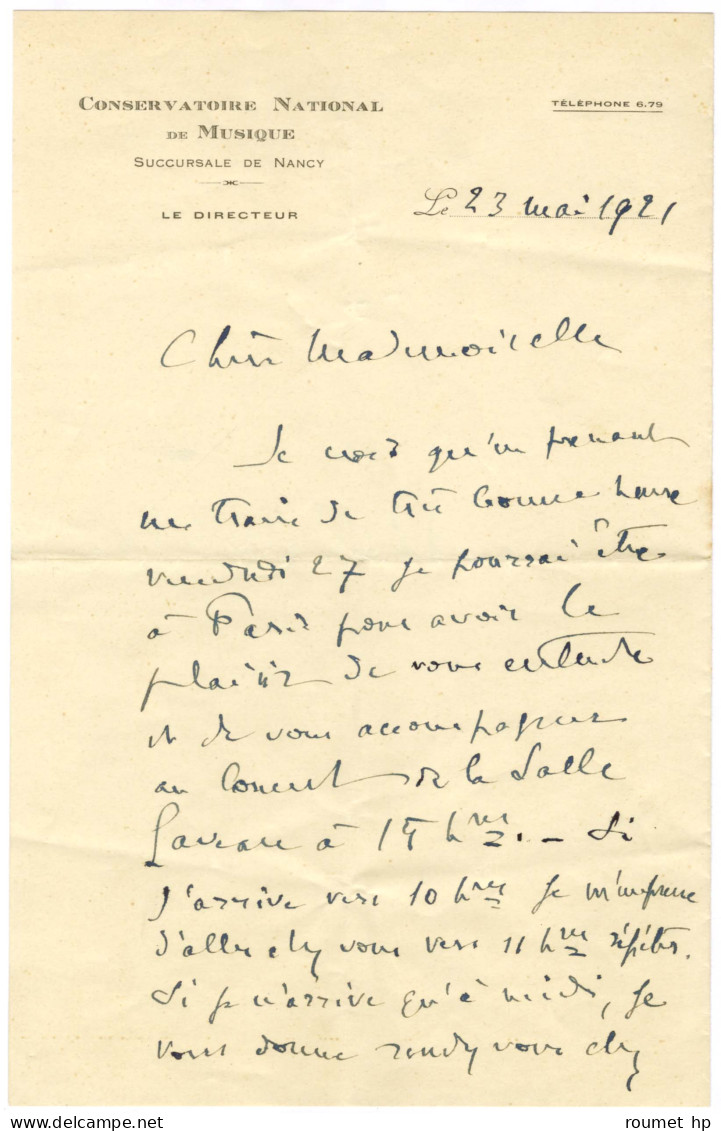 CONSERVATOIRE NATIONAL
DE MUSIQUE
SUCCURSALE DE NANCY
LE DIRECTEUR
TÉLÉPHONE 6.79
Le 23 mai 1921
Chère Mademoiselle
Je crois qu'en prenant
un train de très bonne heure
vendredi 27 je pourrai être
à Paris pour avoir le
plaisir de vous entendre
et de vous accompagner
au Concert de la Salle
Gaveau à 15 hres. — Si
j'arrive vers 10 hres je m'empresse
d'aller chez vous vers 11 hres répéter.
Si je n'arrive qu'à midi, je
vous donne rendez vous chez
roumet hp